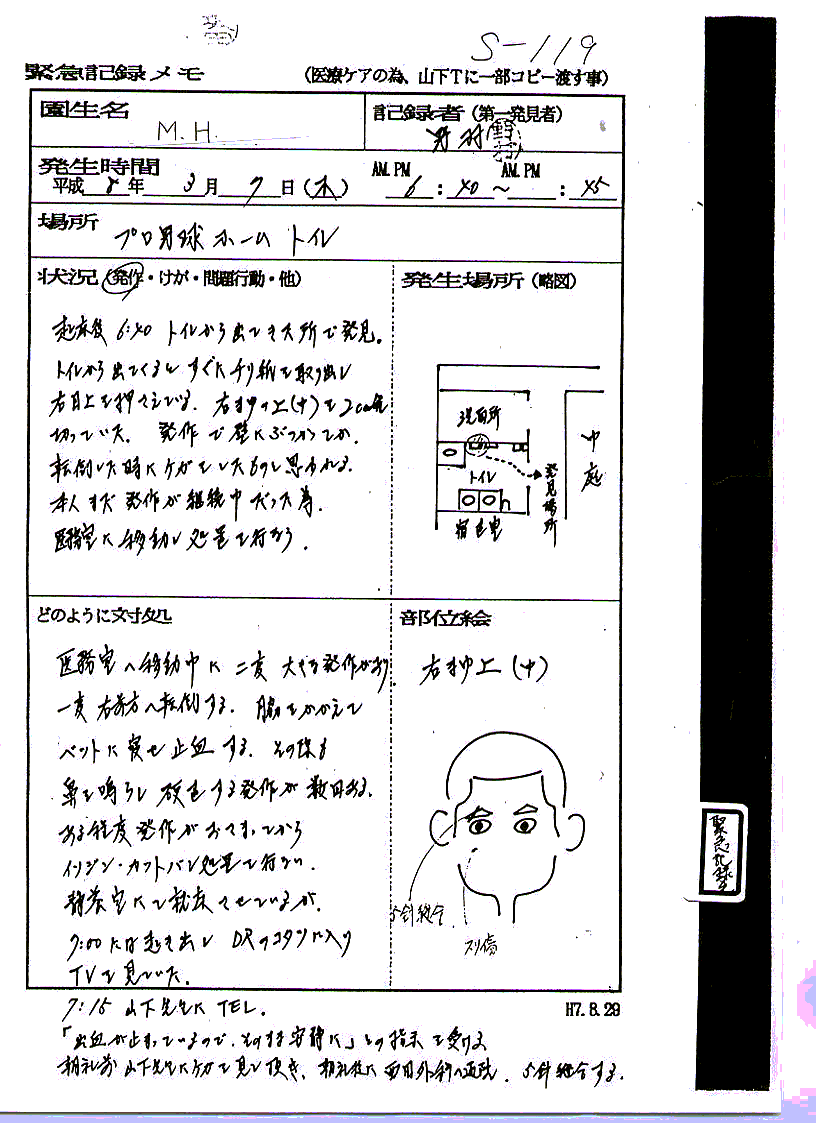 S-119
緊急記録メモ
(医療ケアの為、山下Tに一部コピー渡す事)
園生名
M.H.
記録者(第一発見者)
発生時間
平成 8 年 3 月 7 日(木)
AM.PM AM.PM
6 : 40 ~ : 45
場所
プロ野球ホーム トイレ
状況(発作・けが・問題行動・他)
起床後 6:40 トイレから出てきた所で発見。
トイレから出てくるとすぐにチリ紙を取り出し
右目上を押さえている。右まゆの上(中)を2cm程
切っていた。発作で壁にぶつかってか、
転倒した時にケガをしたものと思われる。
本人まだ発作が継続中だった為、
医務室に移動し処置を行なう。
発生場所(略図)
洗面所
トイレ
宿直室
発見場所
中庭
どのように対処
医務室へ移動中に二度大きな発作があり、
一度右前方へ転倒する。脇をかかえて
ベットに寝せ止血する。その際も
鼻を鳴らし 硬直する発作が数回ある。
ある程度発作がおさまってから
イソジン・カットバン処置を行ない、
静養室にて就床させているが、
7:00には起き出し DRのコタツに入り
TVを見ていた。
部位絵
右まゆ上(中)
5針縫合
スリ傷
7:15 山下先生に TEL.
H7.8.29
「出血が止まっているので、そのまま安静に」との指示を受ける
朝礼前 山下先生にケガを見て頂き、朝礼後に 外科へ通院、5針縫合する。
緊急記録